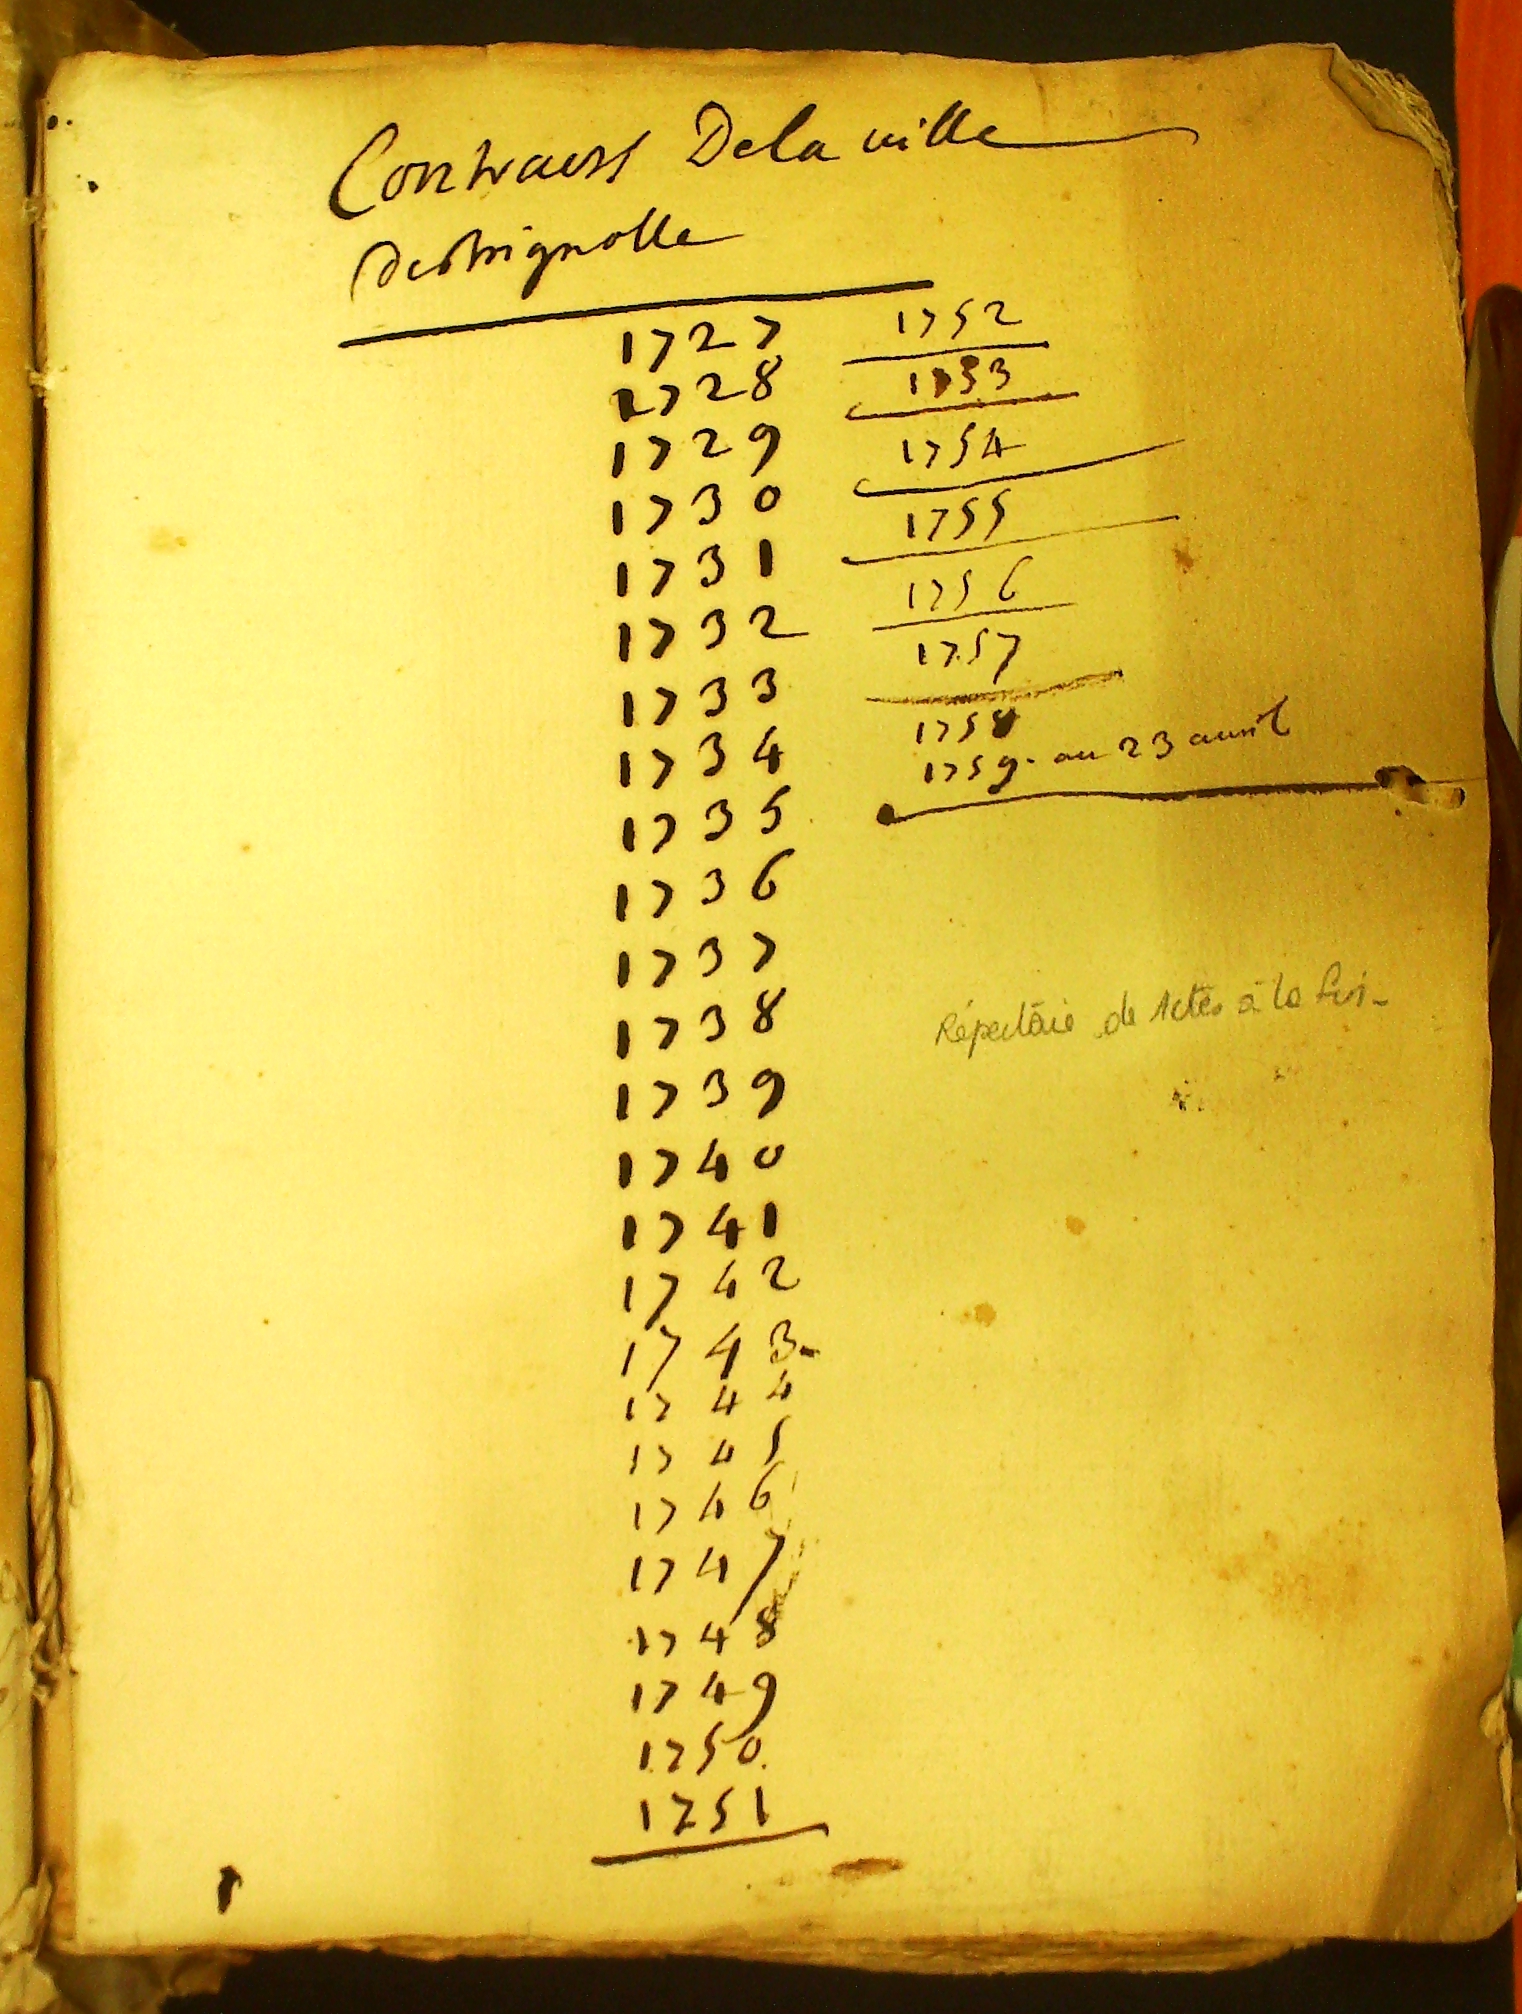 Contracts Dela ville
de Brignolle
1727
1728
1729
1730
1731
1732
1733
1734
1735
1736
1737
1738
1739
1740
1741
1742
1743.
1744
1745
1746
1747
1748
1749
1750.
1751
1752
1753
1754
1755
1756
1757
1758
1759. au 23 auril
Répertoire de Actes à la fin.